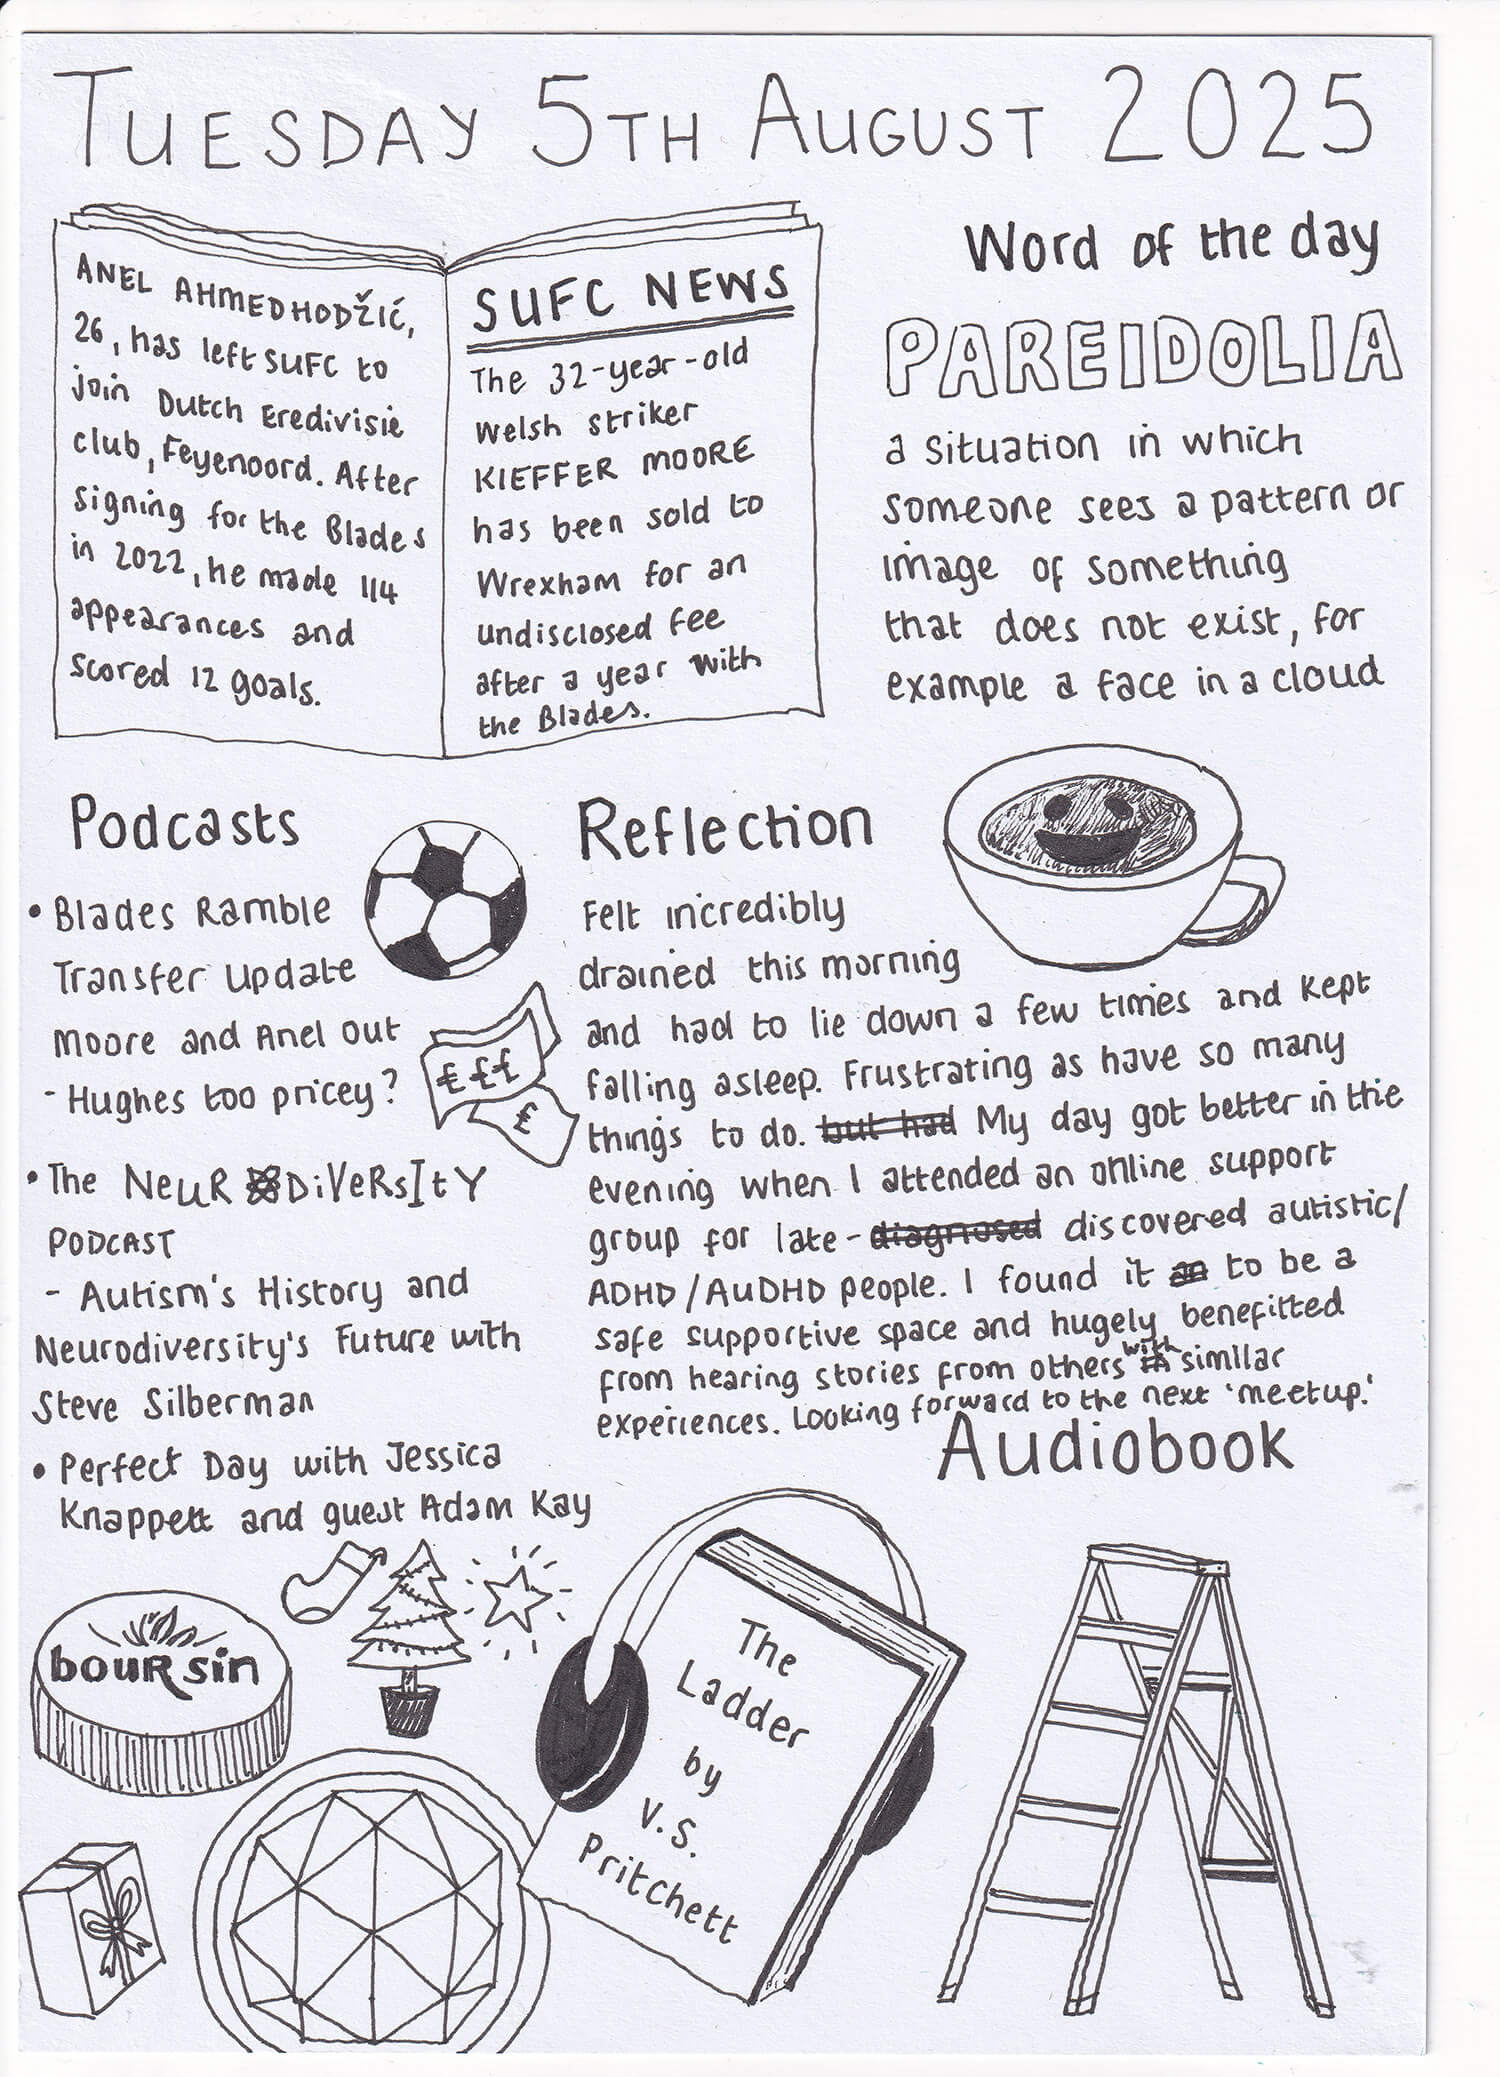 TUESDAY 5TH AUGUST 2025
ANEL AHMEDHODŽIĆ,
26, has left SUFC to
join Dutch Eredivisie
club, Feyenoord. After
signing for the Blades
in 2022, he made 114
appearances and
scored 12 goals.
SUFC NEWS
The 32-year-old
Welsh striker
KIEFFER MOORE
has been sold to
Wrexham for an
undisclosed fee
after a year with
the Blades.
Word of the day
PAREIDOLIA
a situation in which
someone sees a pattern or
image of something
that does not exist, for
example a face in a cloud
Podcasts
• Blades Ramble
Transfer Update
Moore and Anel out
- Hughes too pricey?
£££
£
• The NEURODIVERSITY
PODCAST
- Autism's History and
Neurodiversity's Future with
Steve Silberman
• Perfect Day with Jessica
Knappett and guest Adam Kay
Reflection
Felt incredibly
drained this morning
and had to lie down a few times and kept
falling asleep. Frustrating as have so many
things to do. but had My day got better in the
evening when I attended an online support
group for late-diagnosed discovered autistic/
ADHD/AuDHD people. I found it an to be a
safe supportive space and hugely benefitted
from hearing stories from others with similar
experiences. Looking forward to the next 'meetup.'
boursin
Audiobook
The
Ladder
by
V.S.
Pritchett